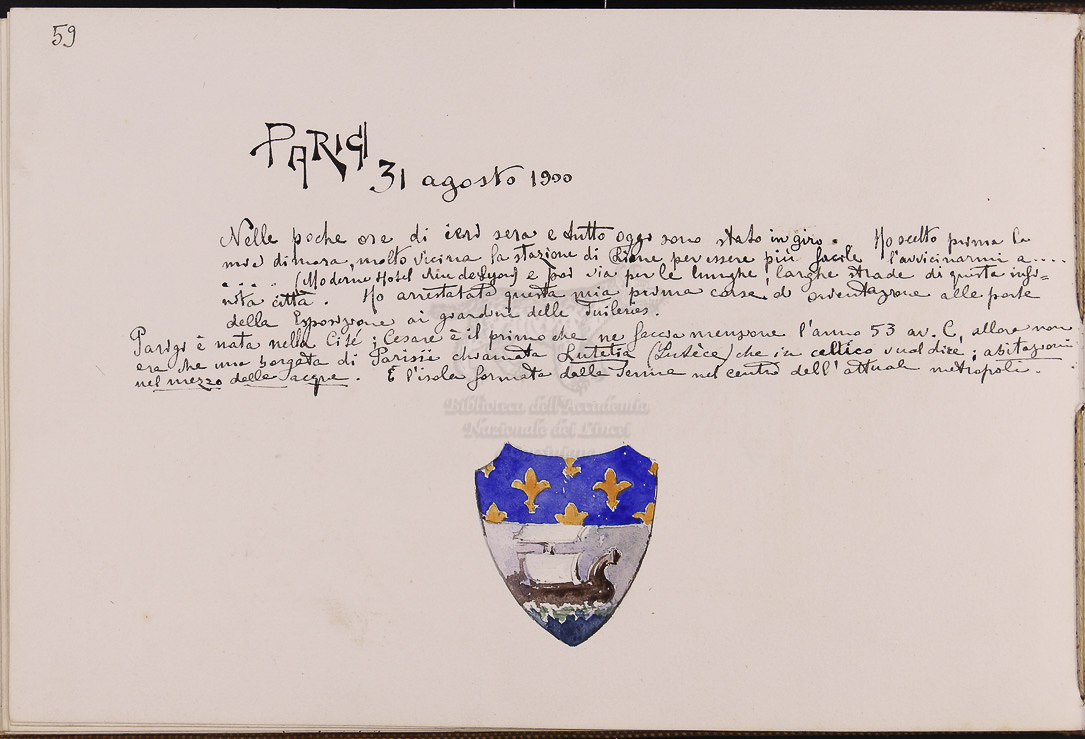 59
PARIGI
31 agosto 1900
Nelle poche ore di ieri sera e tutto oggi sono stato in giro. Ho scelto prima la
mia dimora, molto vicina la stazione di Lione per essere più facile l'avvicinarmi a ....
.... (Moderne Hotel Rue de Lyon) e poi via per le lunghe, larghe strade di questa infi=
nita città. Ho arrestata questa mia prima corsa d'orientazione alle porte
della Esposizione ai giardini delle Tuileries.
Parigi è nata nella Cité; Cesare è il primo che ne faccia menzione l'anno 53 av. C, allora non
era che una borgata di Parisii chiamata Lutetia (Lutèce) che in celtico vuol dire; abitazioni
nel mezzo delle acque. È l'isola formata dalla Senna nel centro dell'attuale metropoli.
Biblioteca dell'Accademia
Nazionale dei Lincei